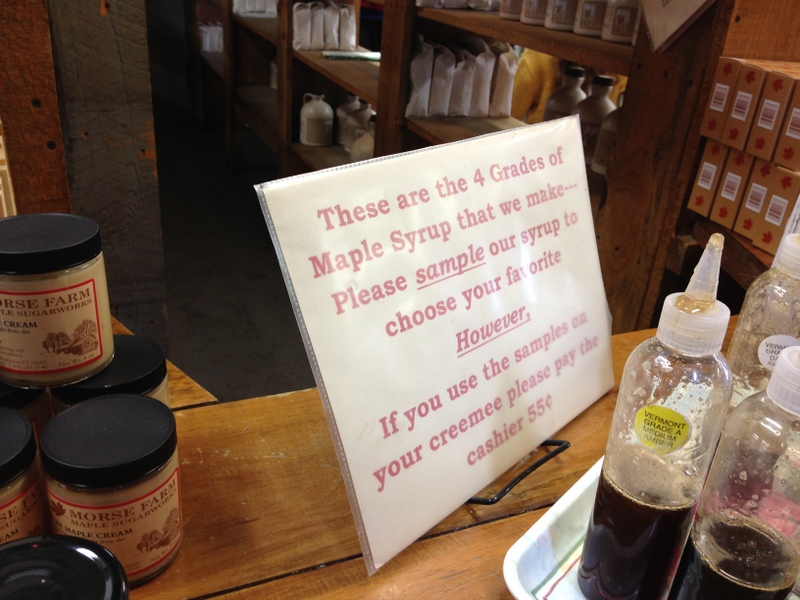 These are the 4 Grades of
Maple Syrup that we make---
Please sample our syrup to
choose your favorite
However,
If you use the samples on
your creemee please pay the
cashier 55¢
MORSE FARM
MAPLE SUGARWORKS
CREAM
MORSE FARM
MAPLE SUGARWORKS
MAPLE CREAM
VERMONT
GRADE A
MEDIUM
AMBER
VERMONT
GRADE